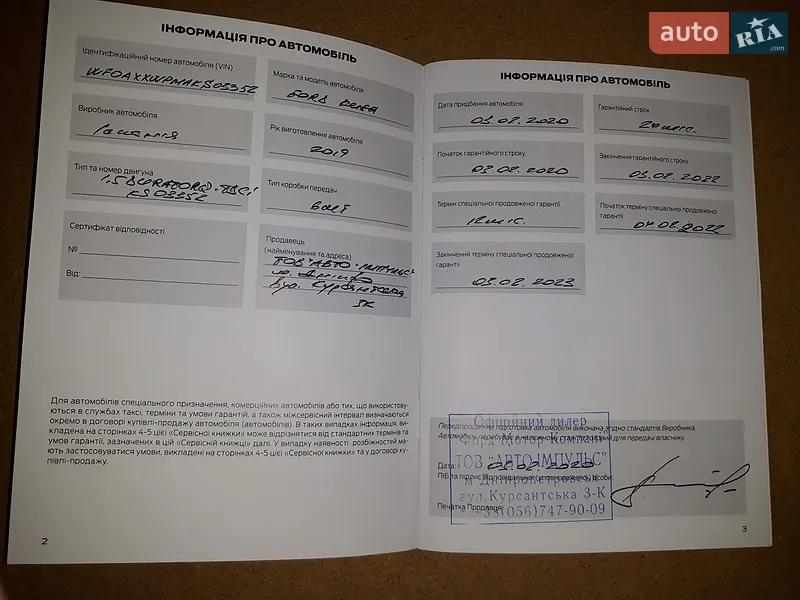 auto RIA .com
ІНФОРМАЦІЯ ПРО АВТОМОБІЛЬ
Ідентифікаційний номер автомобіля (VIN)
Марка та модель автомобіля
FORD
Виробник автомобіля
Рік виготовлення автомобіля
2019
Тип та номер двигуна
KS03352
Тип коробки передач
Сертифікат відповідності
№
Від:
Продавець
(найменування та адреса)
ТОВ "АВТО-ІМПУЛЬС"
м. Дніпро
вул. Курсантська
3К
Для автомобілів спеціального призначення, комерційних автомобілів або тих, що використову-
ються в службах таксі, терміни та умови гарантій, а також міжсервісний інтервал визначаються
окремо в договорі купівлі-продажу автомобіля (автомобілів). В таких випадках інформація, ви-
кладена на сторінках 4-5 цієї «Сервісної книжки» може відрізнятися від стандартних термінів та
умов гарантії, зазначених в цій «Сервісній книжці» далі. У випадку наявності розбіжностей ма-
ють застосовуватися умови, викладені на сторінках 4-5 цієї «Сервісної книжки» та у договорі ку-
півлі-продажу.
2
ІНФОРМАЦІЯ ПРО АВТОМОБІЛЬ
Дата придбання автомобіля
03.02.2020
Гарантійний строк
24 міс.
Початок гарантійного строку
03.02.2020
Закінчення гарантійного строку
03.02.2022
Термін спеціальної продовженої гарантії
12 міс.
Початок терміну спеціальної продовженої
гарантії
04.02.2022
Закінчення терміну спеціальної продовженої
гарантії
03.02.2023
Передпродажна підготовка автомобіля виконана згідно стандартів Виробника.
Автомобіль перебуває в належному стані для передачі власнику.
Дата:
ПІБ та підпис відповідальної (уповноваженої) особи:
Печатка Продавця
Офіційний дилер
Форд Мотор Компані
ТОВ "АВТО-ІМПУЛЬС"
м.Дніпропетровськ
вул.Курсантська 3-К
+38(056)747-90-09
3